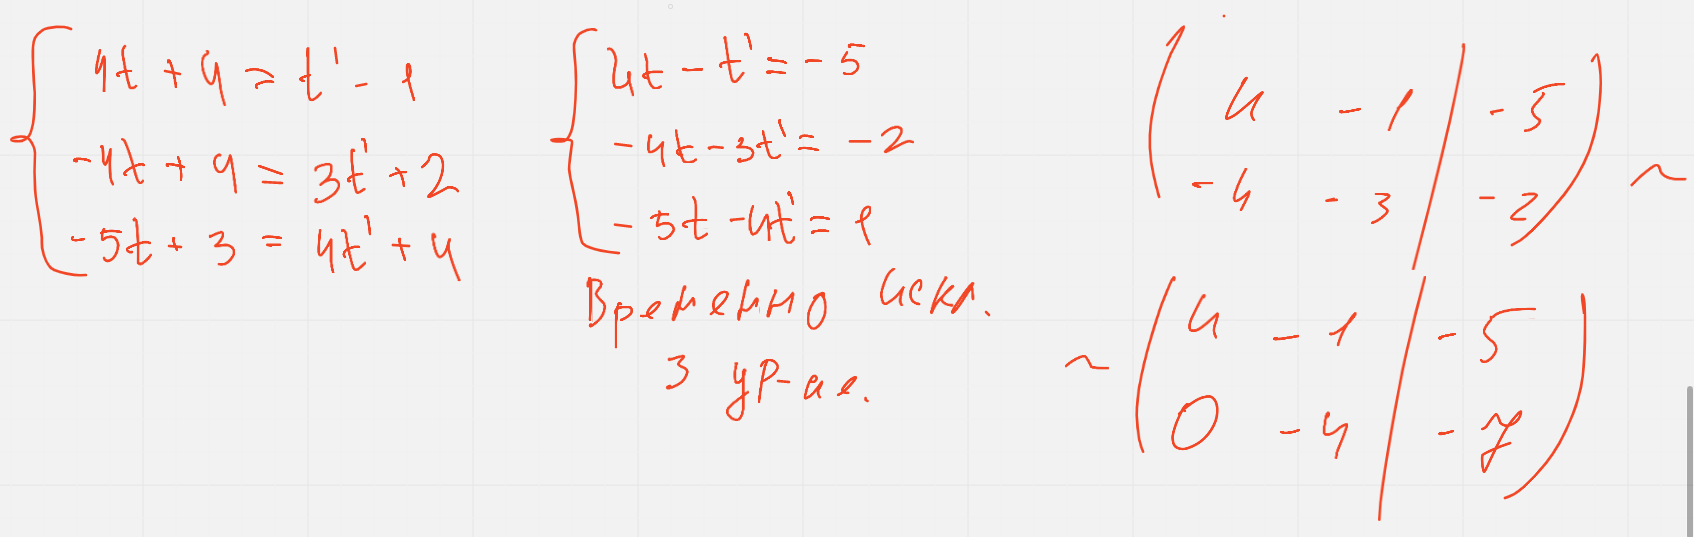 4t + 4 = t' - 1
-4t + 4 = 3t' + 2
-5t + 3 = 4t' + 4
4t - t' = -5
-4t - 3t' = -2
-5t - 4t' = 1
Временно искл.
3 ур-ие.
4 -1 | -5
-4 -3 | -2
~
~
4 -1 | -5
0 -4 | -7